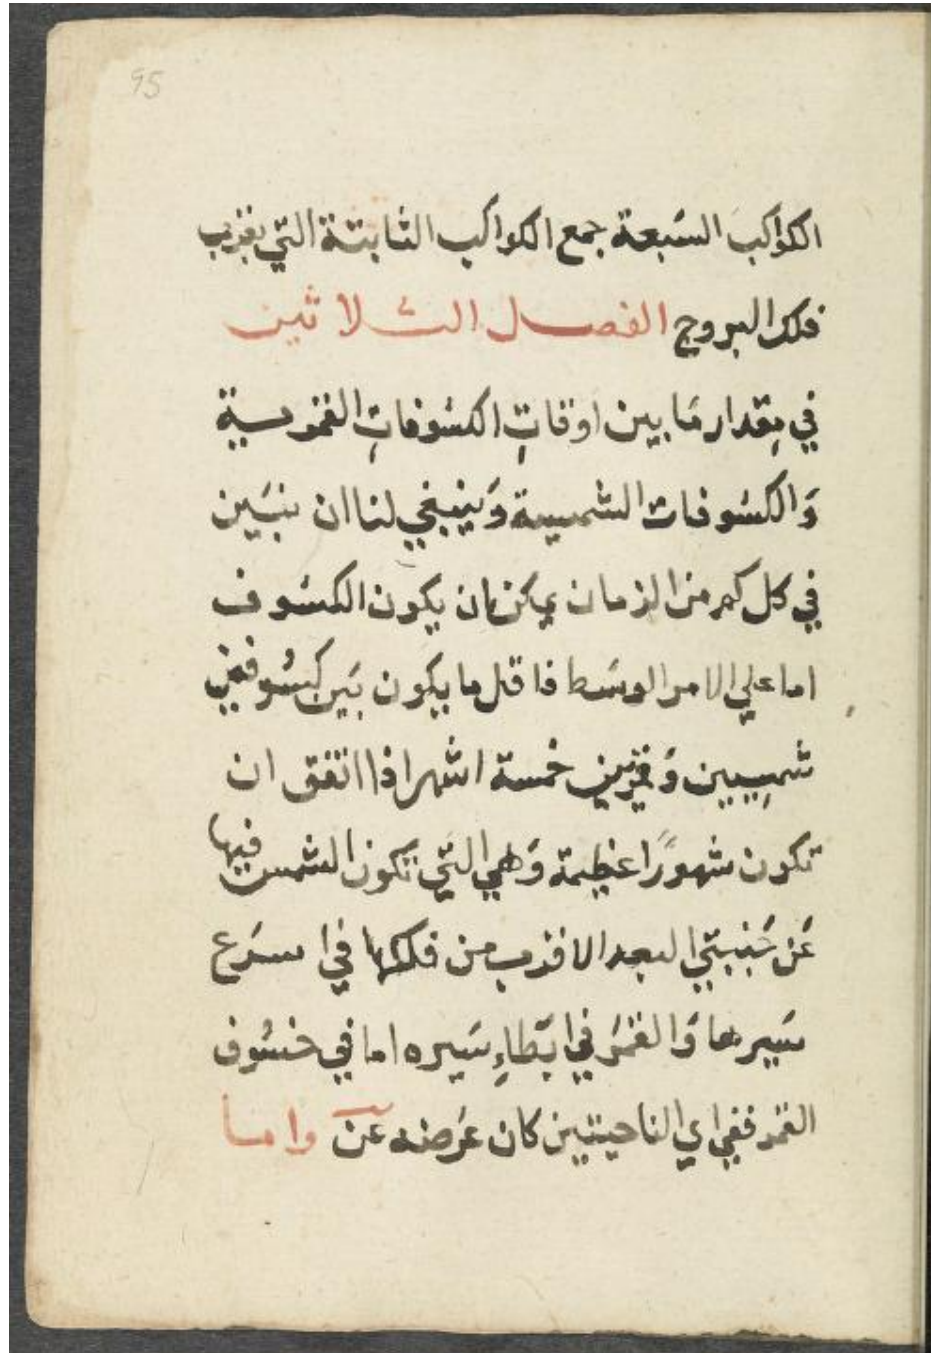 95
الكواكب السبعة جمع الكواكب الثابتة التي بقرب
فلك البروج الفصل الثلاثين
في مقدار ما بين اوقات الكسوفات القمرسية
والكسوفات الشمسية وينبغي لنا ان نبين
في كل كم من الزمان يمكن ان يكون الكسوف
اما علي الامر الوسط فاقل ما يكون بين كسوفين
شمسيين وقمريين خمسة اشهر اذا اتفق ان
تكون شهورًا عظيمة وهي التي تكون الشمس فيها
عن جنبتي البعد الاقرب من فلكها في اسرع
سيرها والقمر في ابطاءِ سيره اما في خسوف
القمر ففي اي الناحيتين كان عرضه عن واما